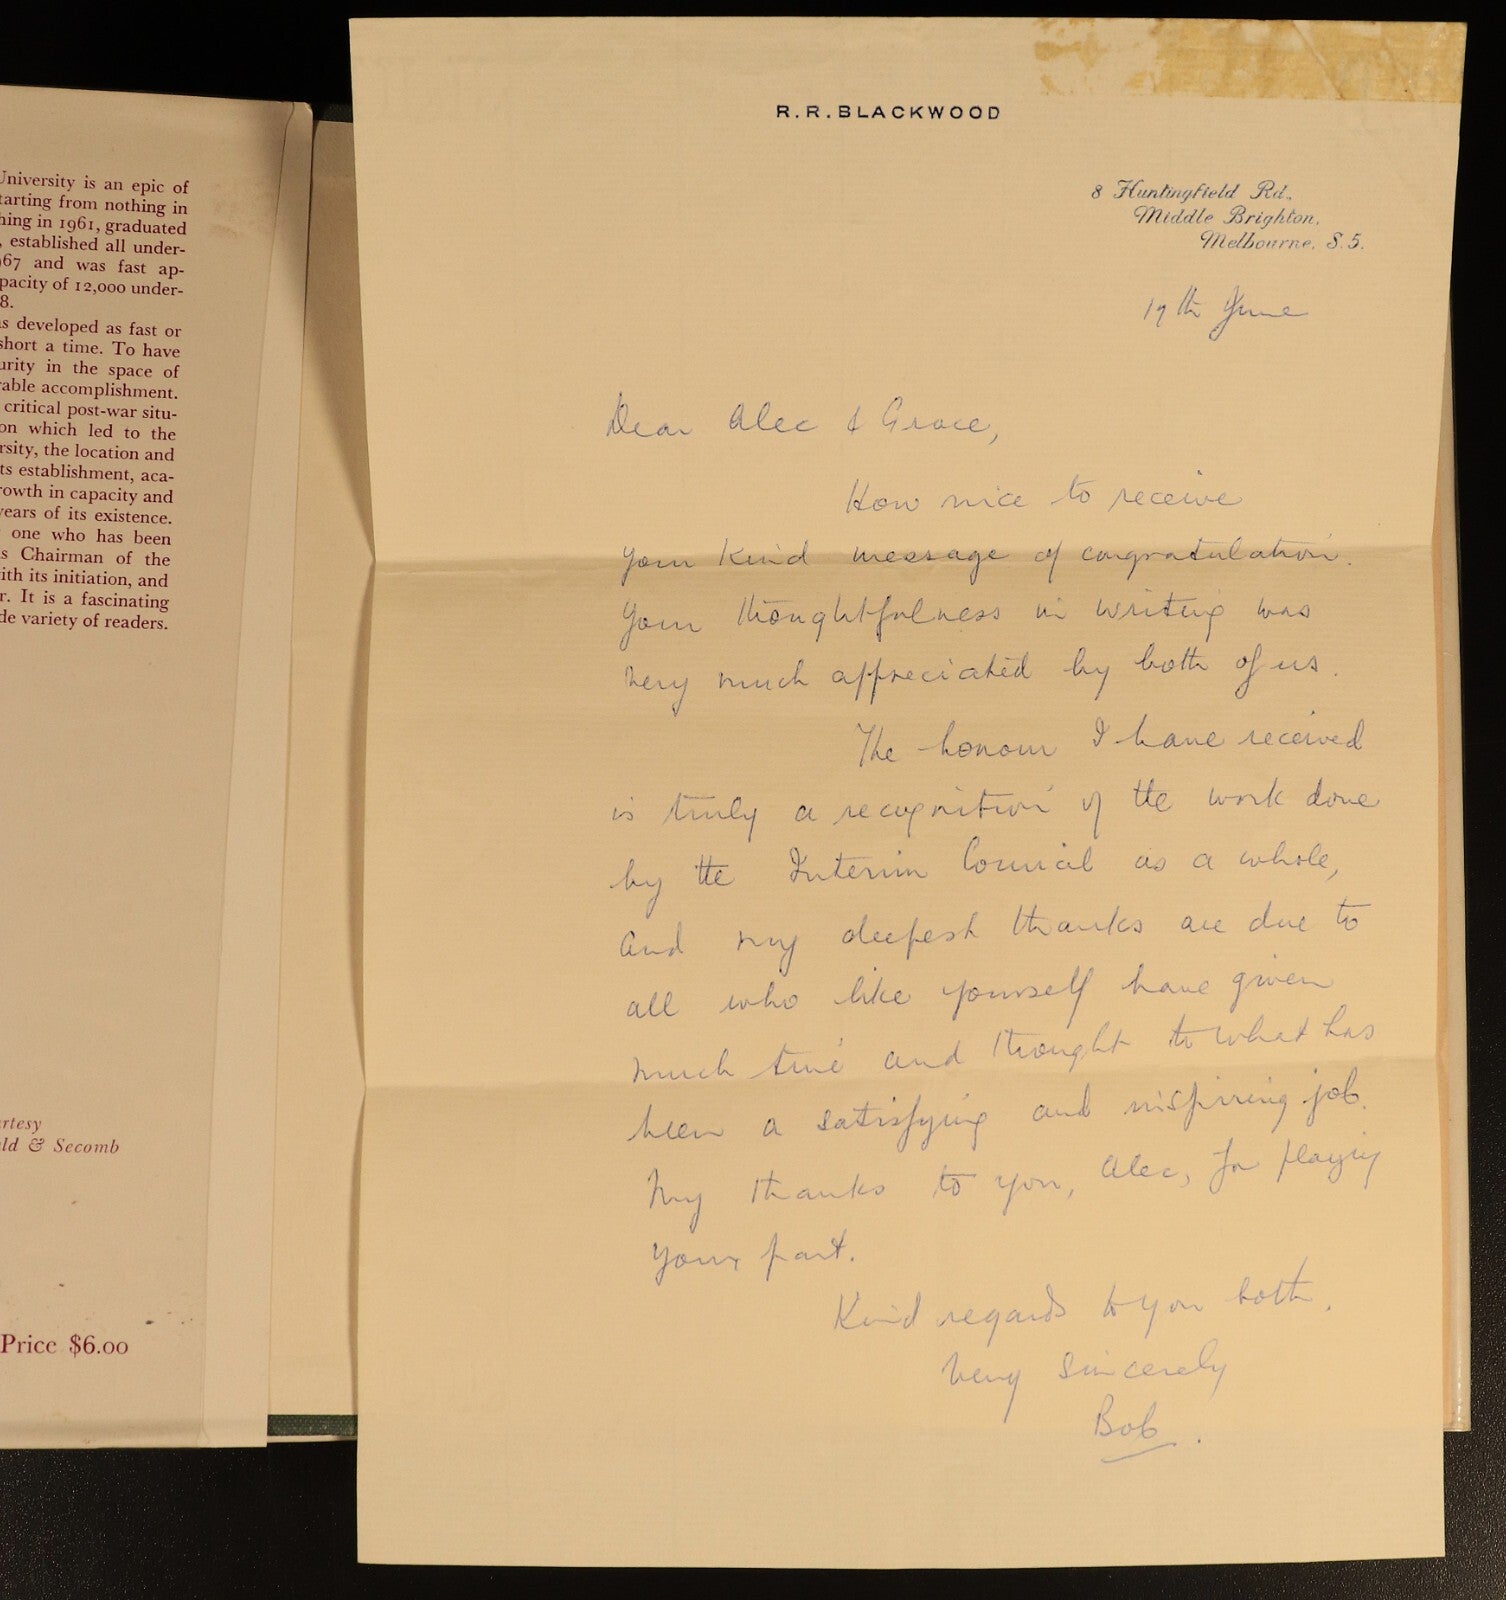 University is an epic of
tarting from nothing in
hing in 1961, graduated
, established all under-
67 and was fast ap-
pacity of 12,000 under-
8.
s developed as fast or
short a time. To have
urity in the space of
rable accomplishment.
critical post-war situ-
on which led to the
rsity, the location and
ts establishment, aca-
rowth in capacity and
years of its existence.
one who has been
s Chairman of the
ith its initiation, and
r. It is a fascinating
de variety of readers.
rtesy
ld & Secomb
Price $6.00
R.R. BLACKWOOD
8 Huntingfield Rd.,
Middle Brighton,
Melbourne. S.5.
19th June
Dear Alec & Grace,
How nice to receive
your kind message of congratulation.
Your thoughtfulness in writing was
very much appreciated by both of us.
The honour I have received
is truly a recognition of the work done
by the Interim Council as a whole,
and my deepest thanks are due to
all who like yourself have given
much time and thought to what has
been a satisfying and inspiring job.
My thanks to you, Alec, for playing
your part.
Kind regards to you both.
Very sincerely
Bob.